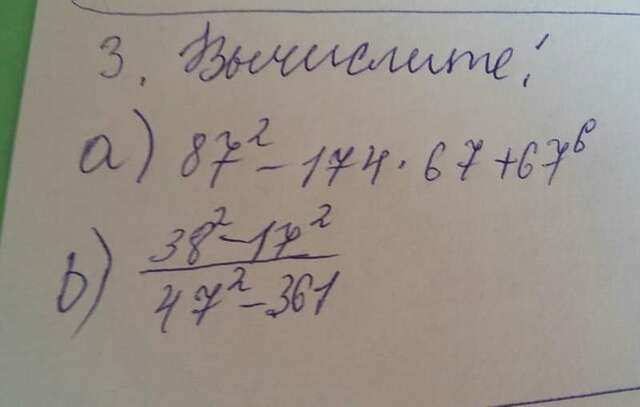 3. Вычислите!
а) 87² - 174 · 67 + 67⁶
b) 38² - 17²
47² - 361